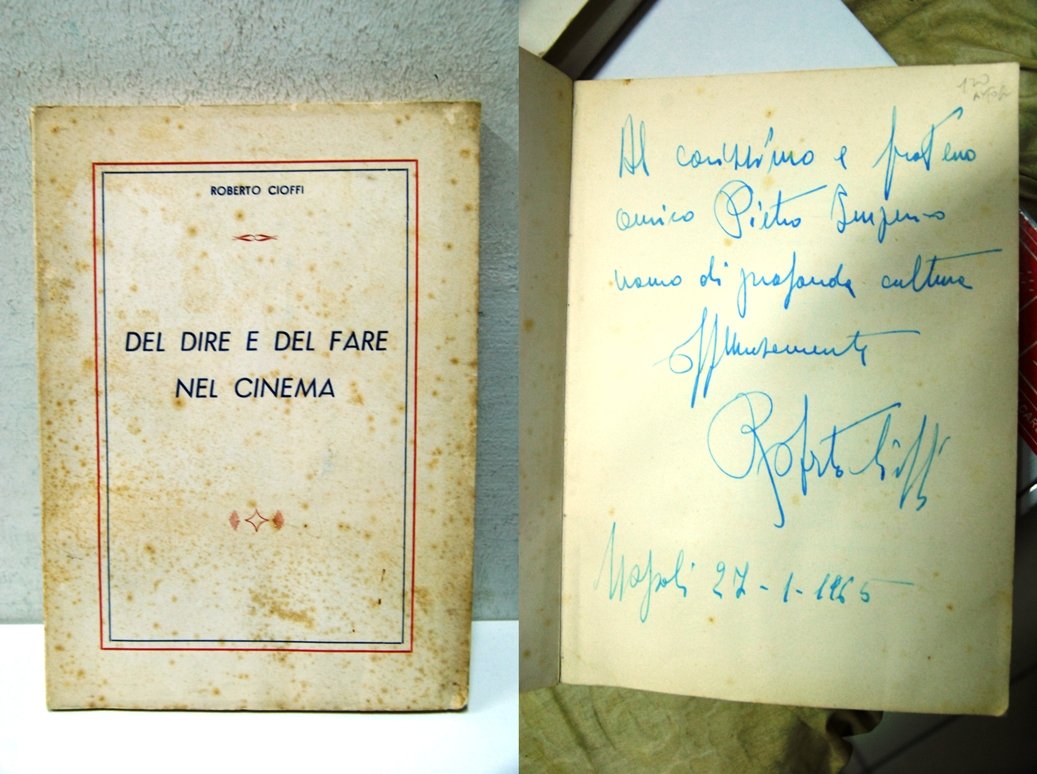 ROBERTO CIOFFI
DEL DIRE E DEL FARE
NEL CINEMA
Al carissimo e fraterno
amico Pietro
uomo di profonda cultura
affettuosamente
Roberto Cioffi
Napoli 27-1-1965